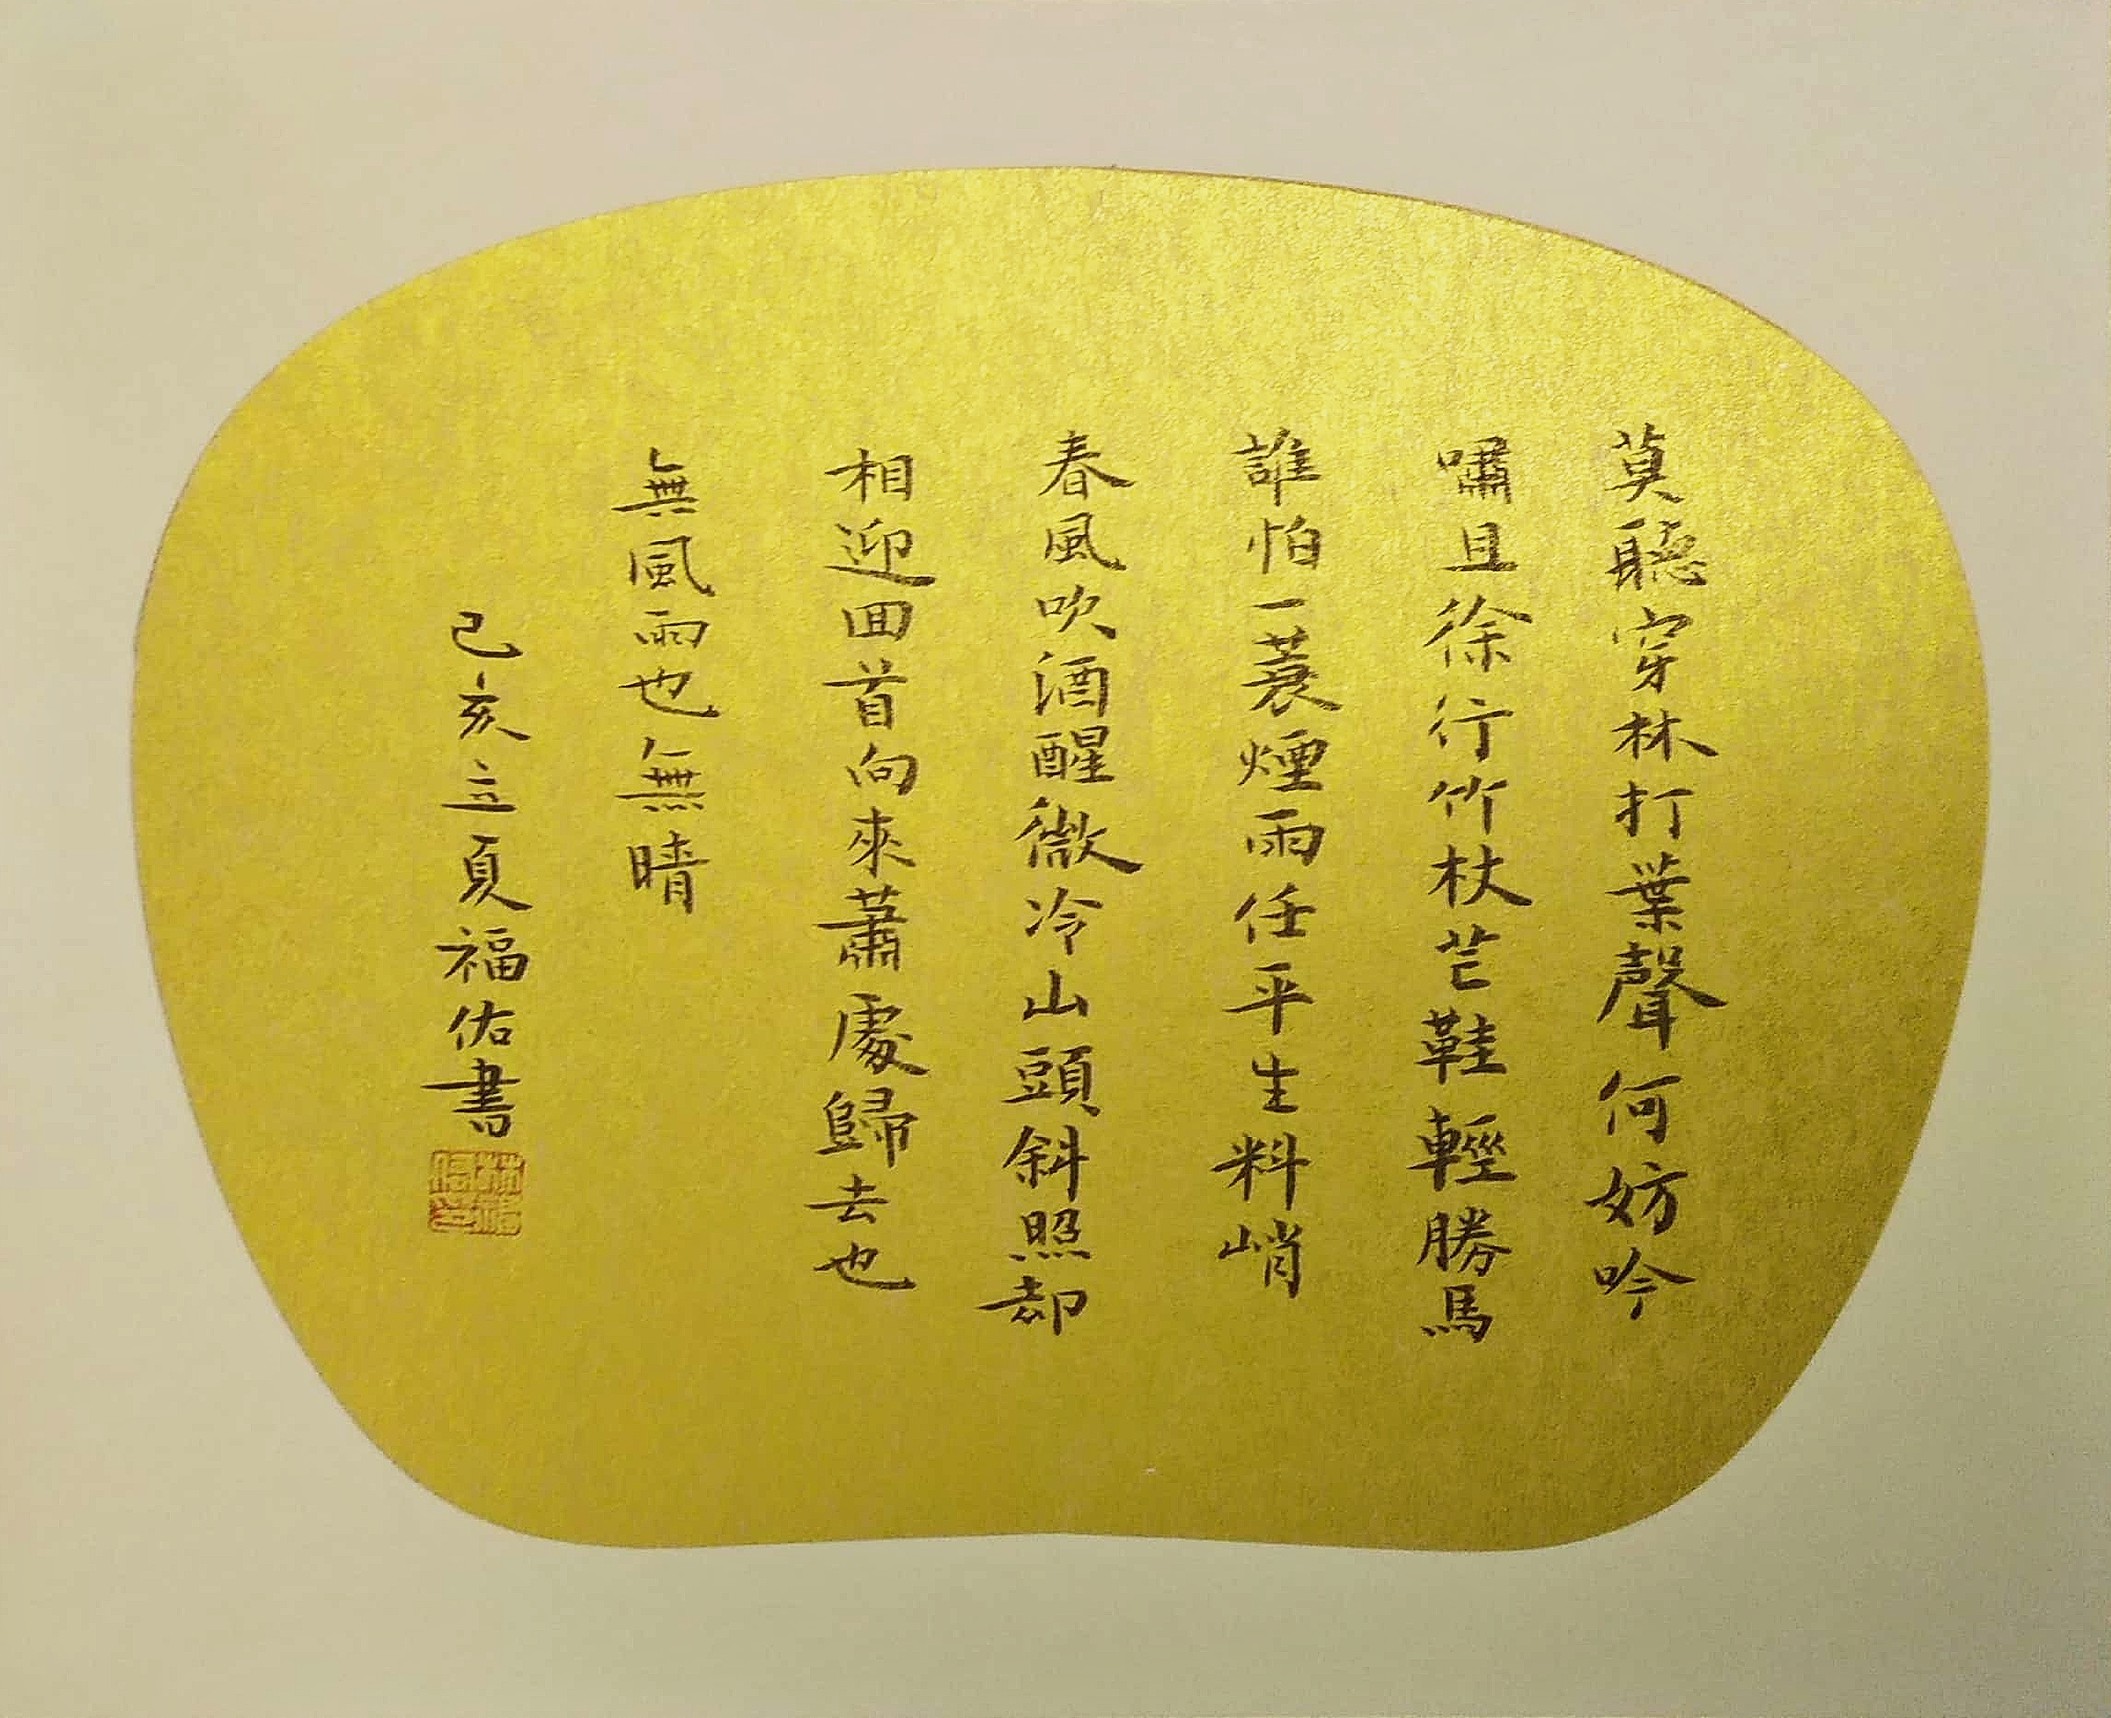 莫聽穿林打葉聲何妨吟
嘯且徐行竹杖芒鞋輕勝馬
誰怕一蓑煙雨任平生料峭
春風吹酒醒微冷山頭斜照却
相迎回首向來蕭處歸去也
無風雨也無晴
己亥立夏福佑書